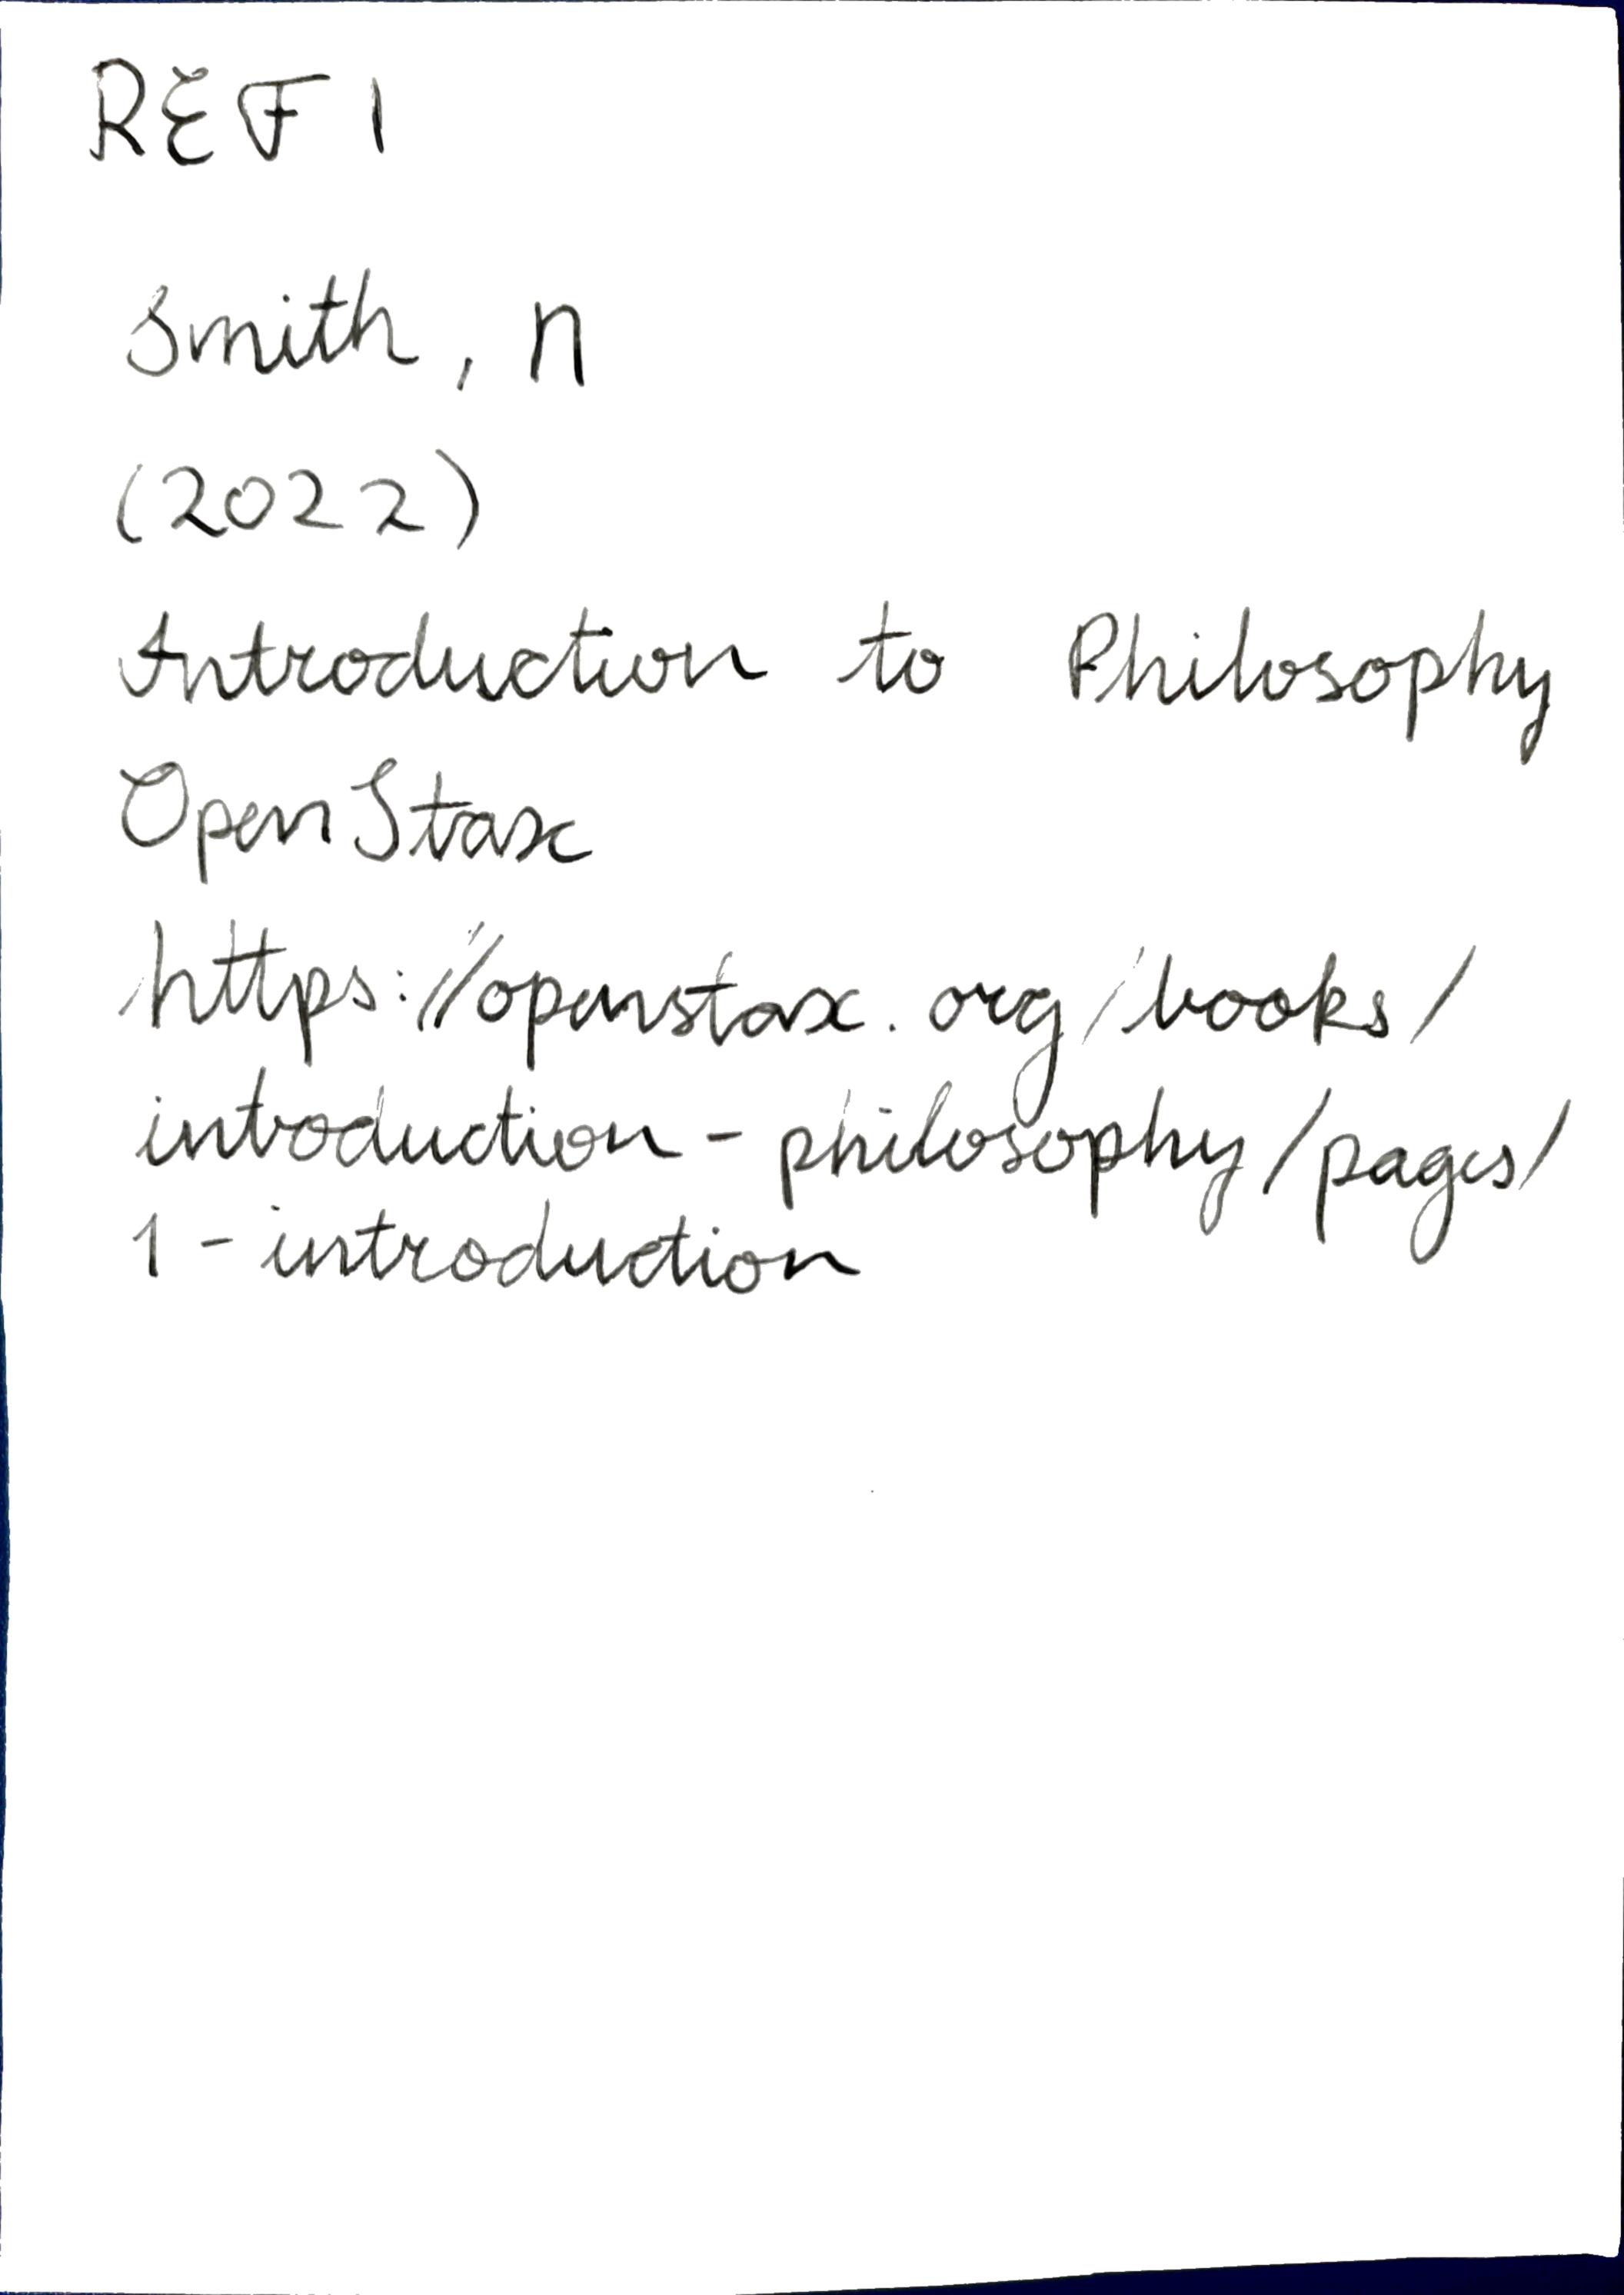 REF 1
Smith, n
(2022)
Introduction to Philosophy
OpenStax
https://openstax.org/books/
introduction-philosophy/pages/
1-introduction